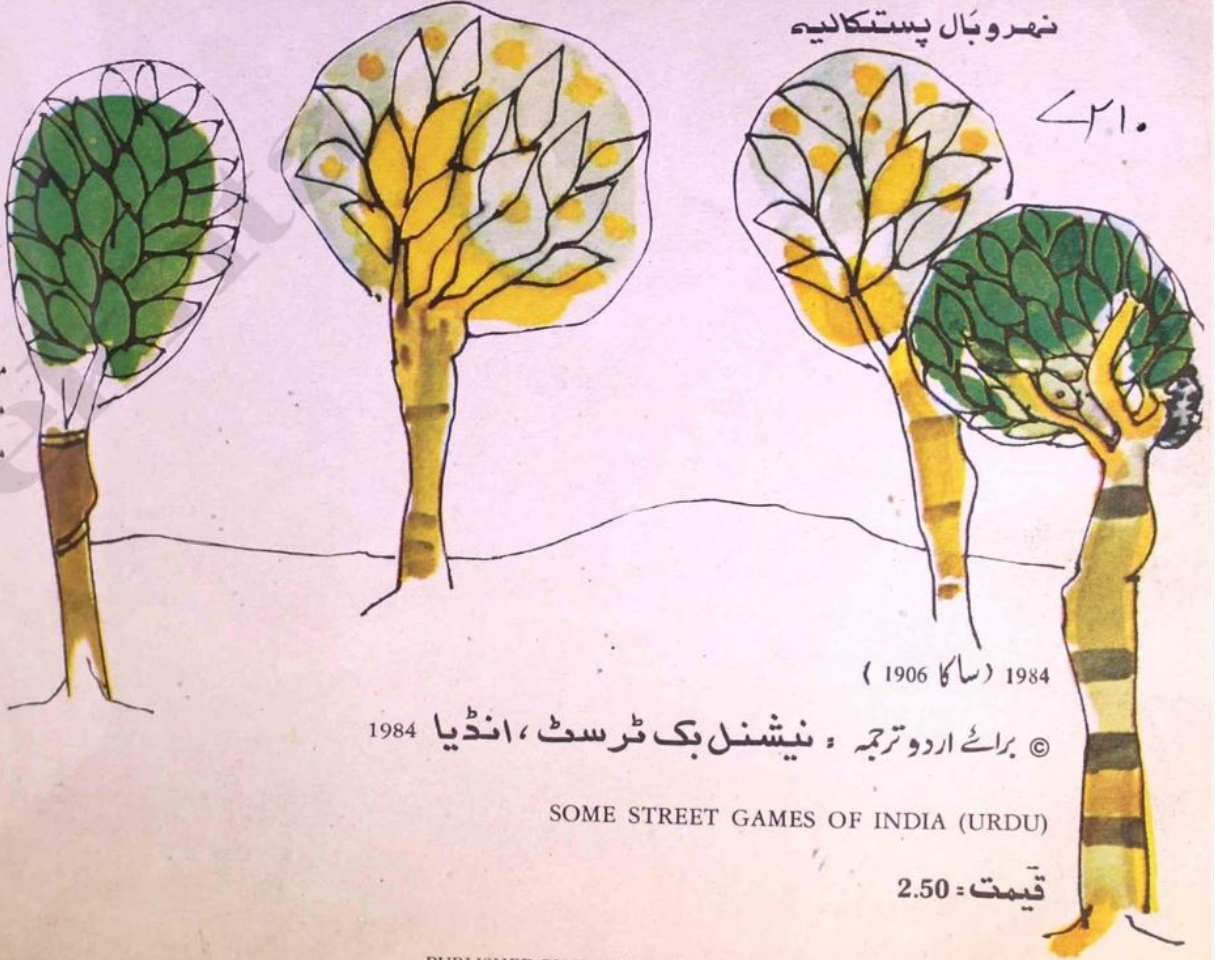 نہرو بَال پستکالیہ
1984 (ساکا 1906)
© برائے اردو ترجمہ : نیشنل بک ٹرسٹ، انڈیا 1984
SOME STREET GAMES OF INDIA (URDU)
قیمت : 2.50